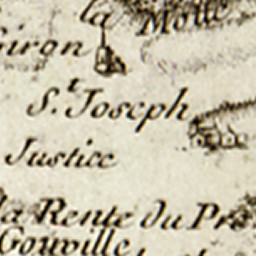 la Motte
Giron
S.t Joseph
Justice
la Rente du Pre
Gouville